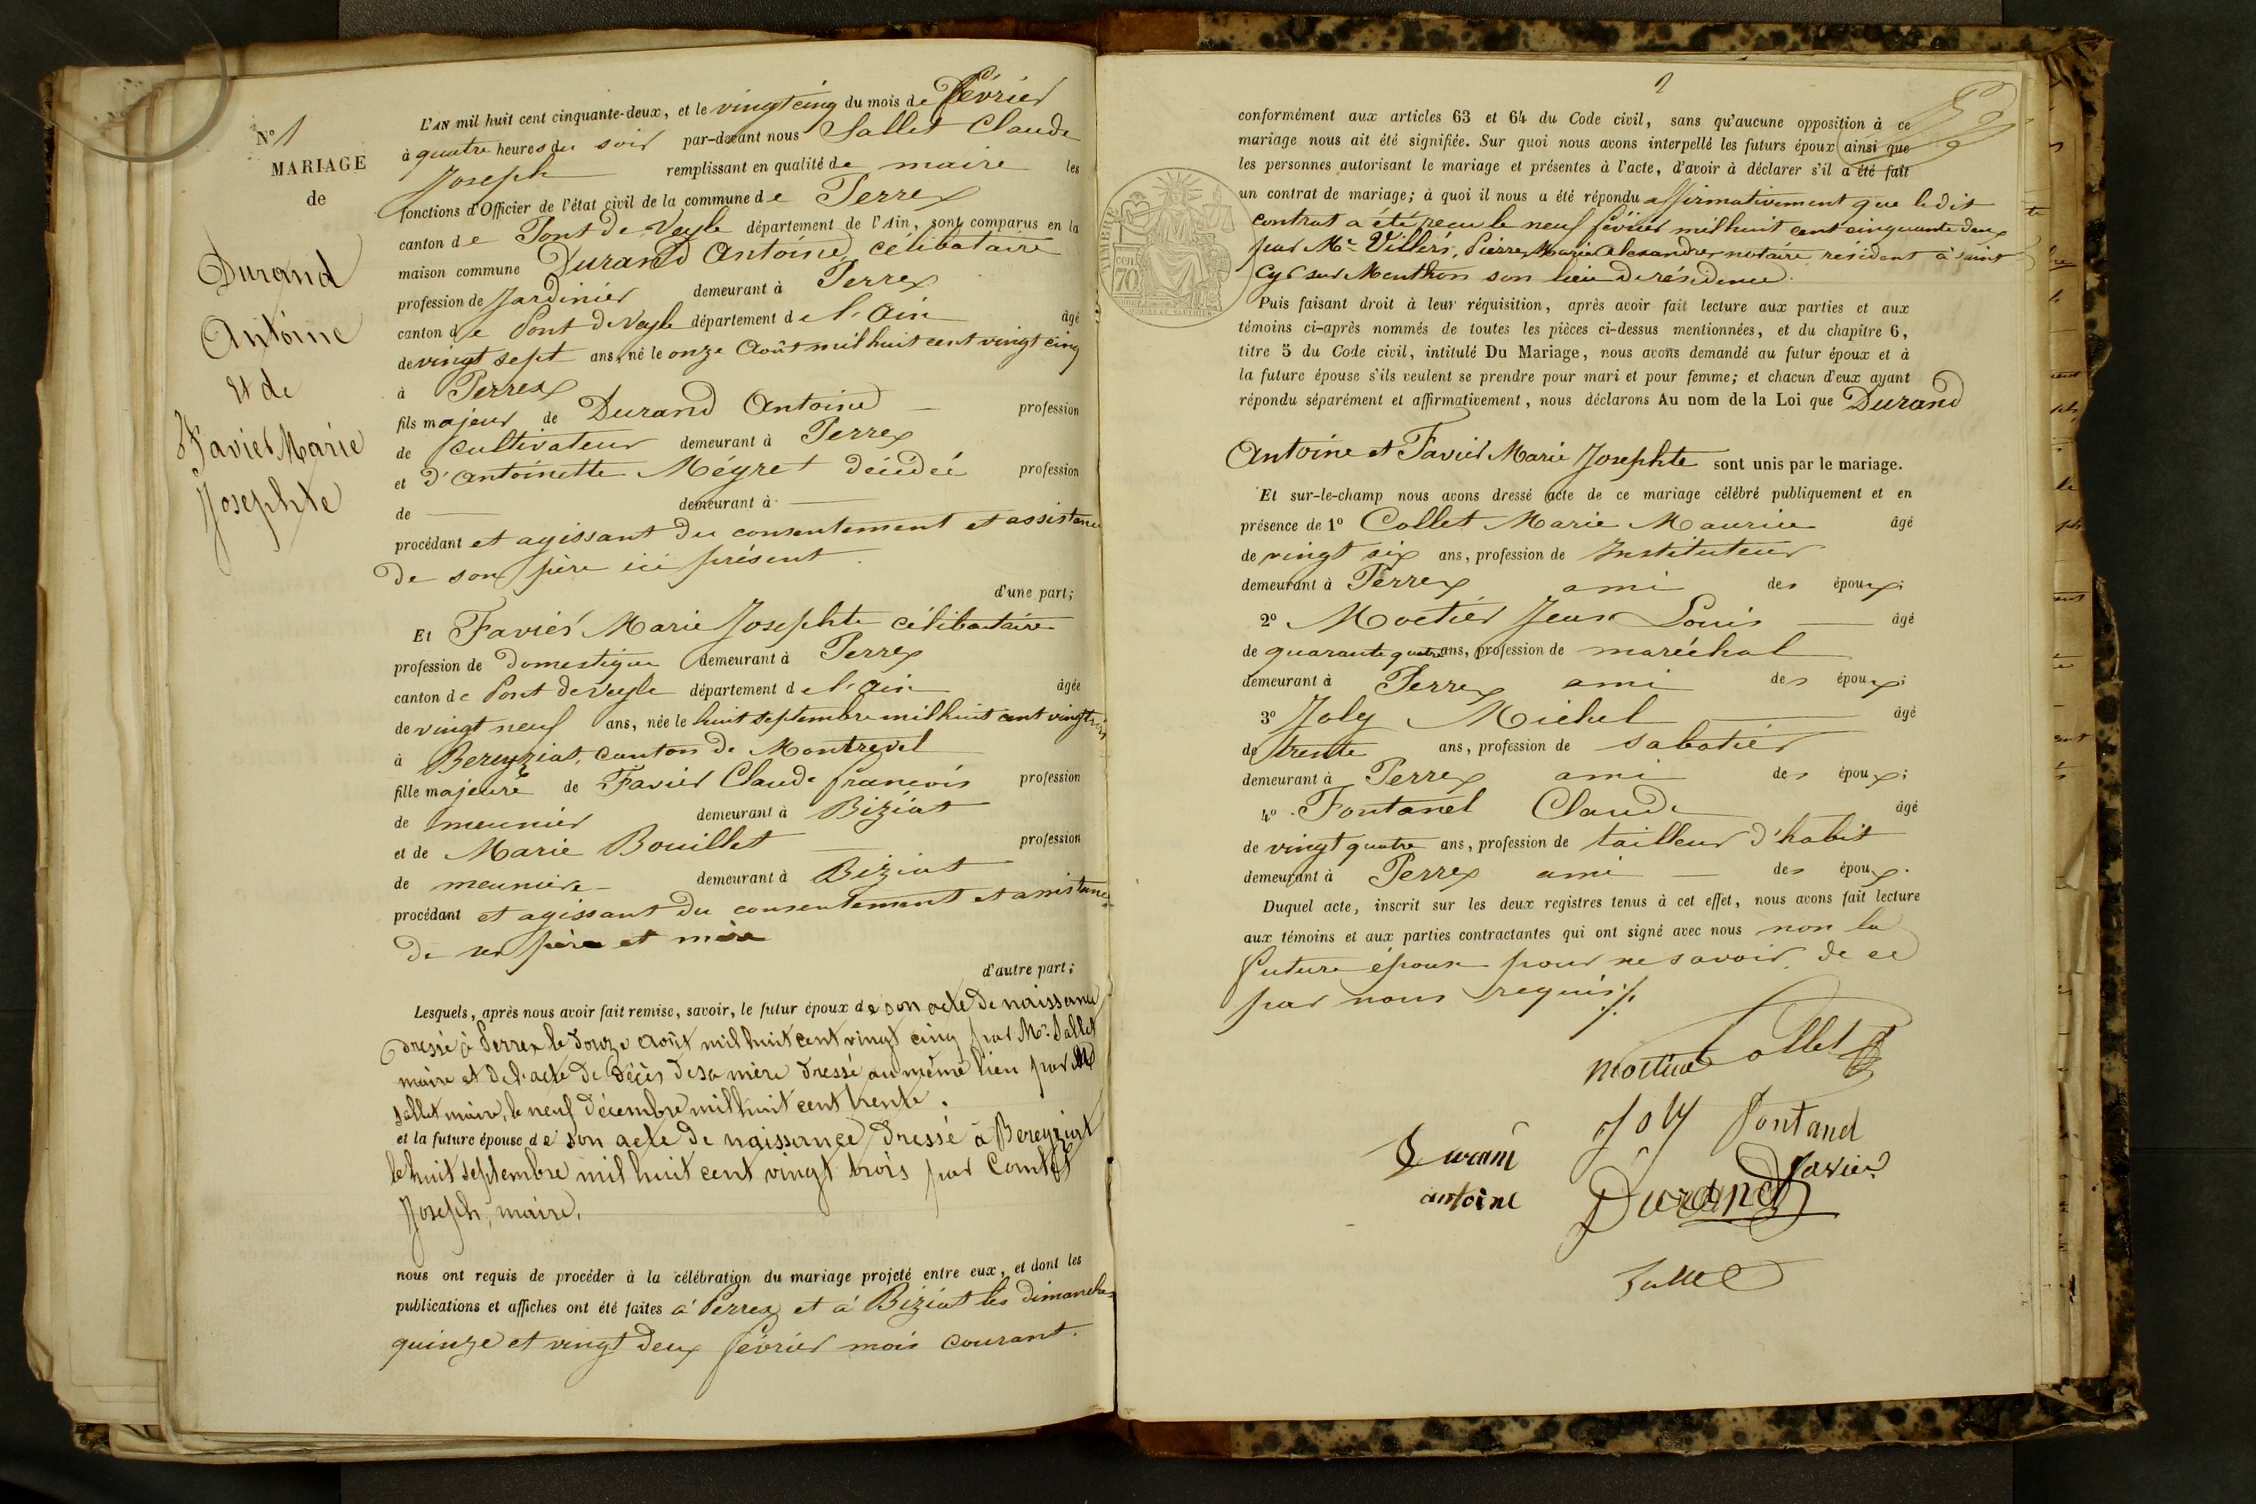 N° 1
MARIAGE
de
Durand
Antoine
Et de
Favier Marie
Josephte
L'AN mil huit cent cinquante-deux, et le vingt cinq du mois de février
à quatre heures du soir par-devant nous Sallet Claude
Joseph remplissant en qualité de maire les
fonctions d'Officier de l'état civil de la commune de Perrex
canton de Pont de Veyle département de l'Ain, sont comparus en la
maison commune Durand Antoine, célibataire
profession de Jardinier demeurant à Perrex
canton de Pont de Veyle département de l'Ain âgé
de vingt sept ans, né le onze Août mil huit cent vingt cinq
à Perrex
fils majeur de Durand Antoine profession
de cultivateur demeurant à Perrex
et d'Antoinette Méyret décédée profession
de demeurant à
procédant et agissant du consentement et assistance
de son père ici présent.
d'une part;
Et Favier Marie Josephte célibataire
profession de domestique demeurant à Perrex
canton de Pont de Veyle département de l'Ain âgée
de vingt neuf ans, née le huit septembre mil huit cent vingt trois
à Bereyziat, canton de Montrevel
fille majeure de Favier Claude françois profession
de meunier demeurant à Biziat
et de Marie Bouillet profession
de meunière demeurant à Biziat
procédant et agissant du consentement et assistance
de ses père et mère
d'autre part;
Lesquels, après nous avoir fait remise, savoir, le futur époux de son acte de naissance
dressé à Perrex le douze Août mil huit cent vingt cinq par Mr. Sallet
maire et de l'acte de décès de sa mère dressé au même lieu par Mr
Sallet maire, le neuf décembre mil huit cent trente.
et la future épouse de son acte de naissance dressé à Bereyziat
le huit septembre mil huit cent vingt trois par Comtet
Joseph, maire.
nous ont requis de procéder à la célébration du mariage projeté entre eux, et dont les
publications et affiches ont été faites à Perrex et à Biziat les dimanches
quinze et vingt deux février mois courant.
2
conformément aux articles 63 et 64 du Code civil, sans qu'aucune opposition à ce
mariage nous ait été signifiée. Sur quoi nous avons interpellé les futurs époux ainsi que
les personnes autorisant le mariage et présentes à l'acte, d'avoir à déclarer s'il a été fait
un contrat de mariage; à quoi il nous a été répondu affirmativement que ledit
contrat a été reçu le neuf février mil huit cent cinquante deux
par Me. Villers, Pierre Marie Alexandre notaire résident à saint
Cyr sur Menthon son lieu de résidence.
TIMBRE
70
Puis faisant droit à leur réquisition, après avoir fait lecture aux parties et aux
témoins ci-après nommés de toutes les pièces ci-dessus mentionnées, et du chapitre 6,
titre 5 du Code civil, intitulé Du Mariage, nous avons demandé au futur époux et à
la future épouse s'ils veulent se prendre pour mari et pour femme; et chacun d'eux ayant
répondu séparément et affirmativement, nous déclarons Au nom de la Loi que Durand
Antoine et Favier Marie Josephte sont unis par le mariage.
Et sur-le-champ nous avons dressé acte de ce mariage célébré publiquement et en
présence de 1° Collet Marie Maurice âgé
de vingt six ans, profession de Instituteur
demeurant à Perrex ami des époux;
2° Moetier Jean Louis âgé
de quarante quatre ans, profession de maréchal
demeurant à Perrex ami des époux;
3° Joly Michel âgé
de trente ans, profession de sabotier
demeurant à Perrex ami des époux;
4° Fontanel Claude âgé
de vingt quatre ans, profession de tailleur d'habit
demeurant à Perrex ami des époux.
Duquel acte, inscrit sur les deux registres tenus à cet effet, nous avons fait lecture
aux témoins et aux parties contractantes qui ont signé avec nous non la
future épouse pour ne savoir, de ce
par nous requis.
Collet
Joly
Durand
Favier
antoine
Durand
Sallet